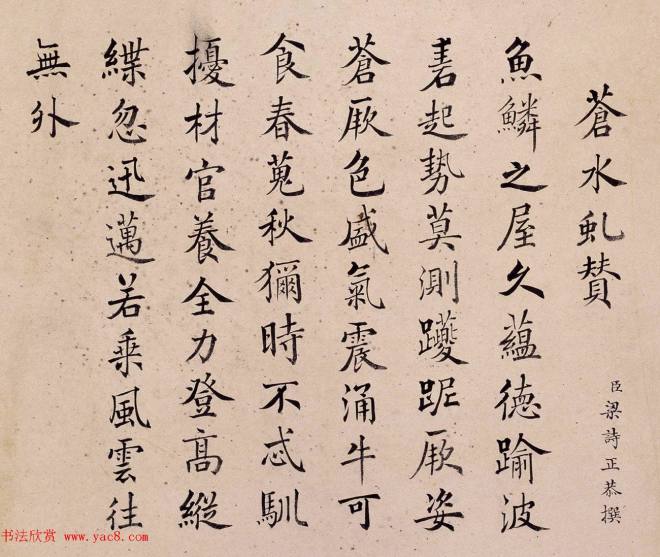 蒼水虬贊
臣梁詩正恭撰
魚鱗之屋久蘊德踰波
砉起勢莫測躨跜厥姿
蒼厥色盛氣震涌牛可
食春蒐秋獮時不忒馴
擾材官養全力登高縱
緤忽迅邁若乘風雲往
無外
书法欣赏 www.yac8.com